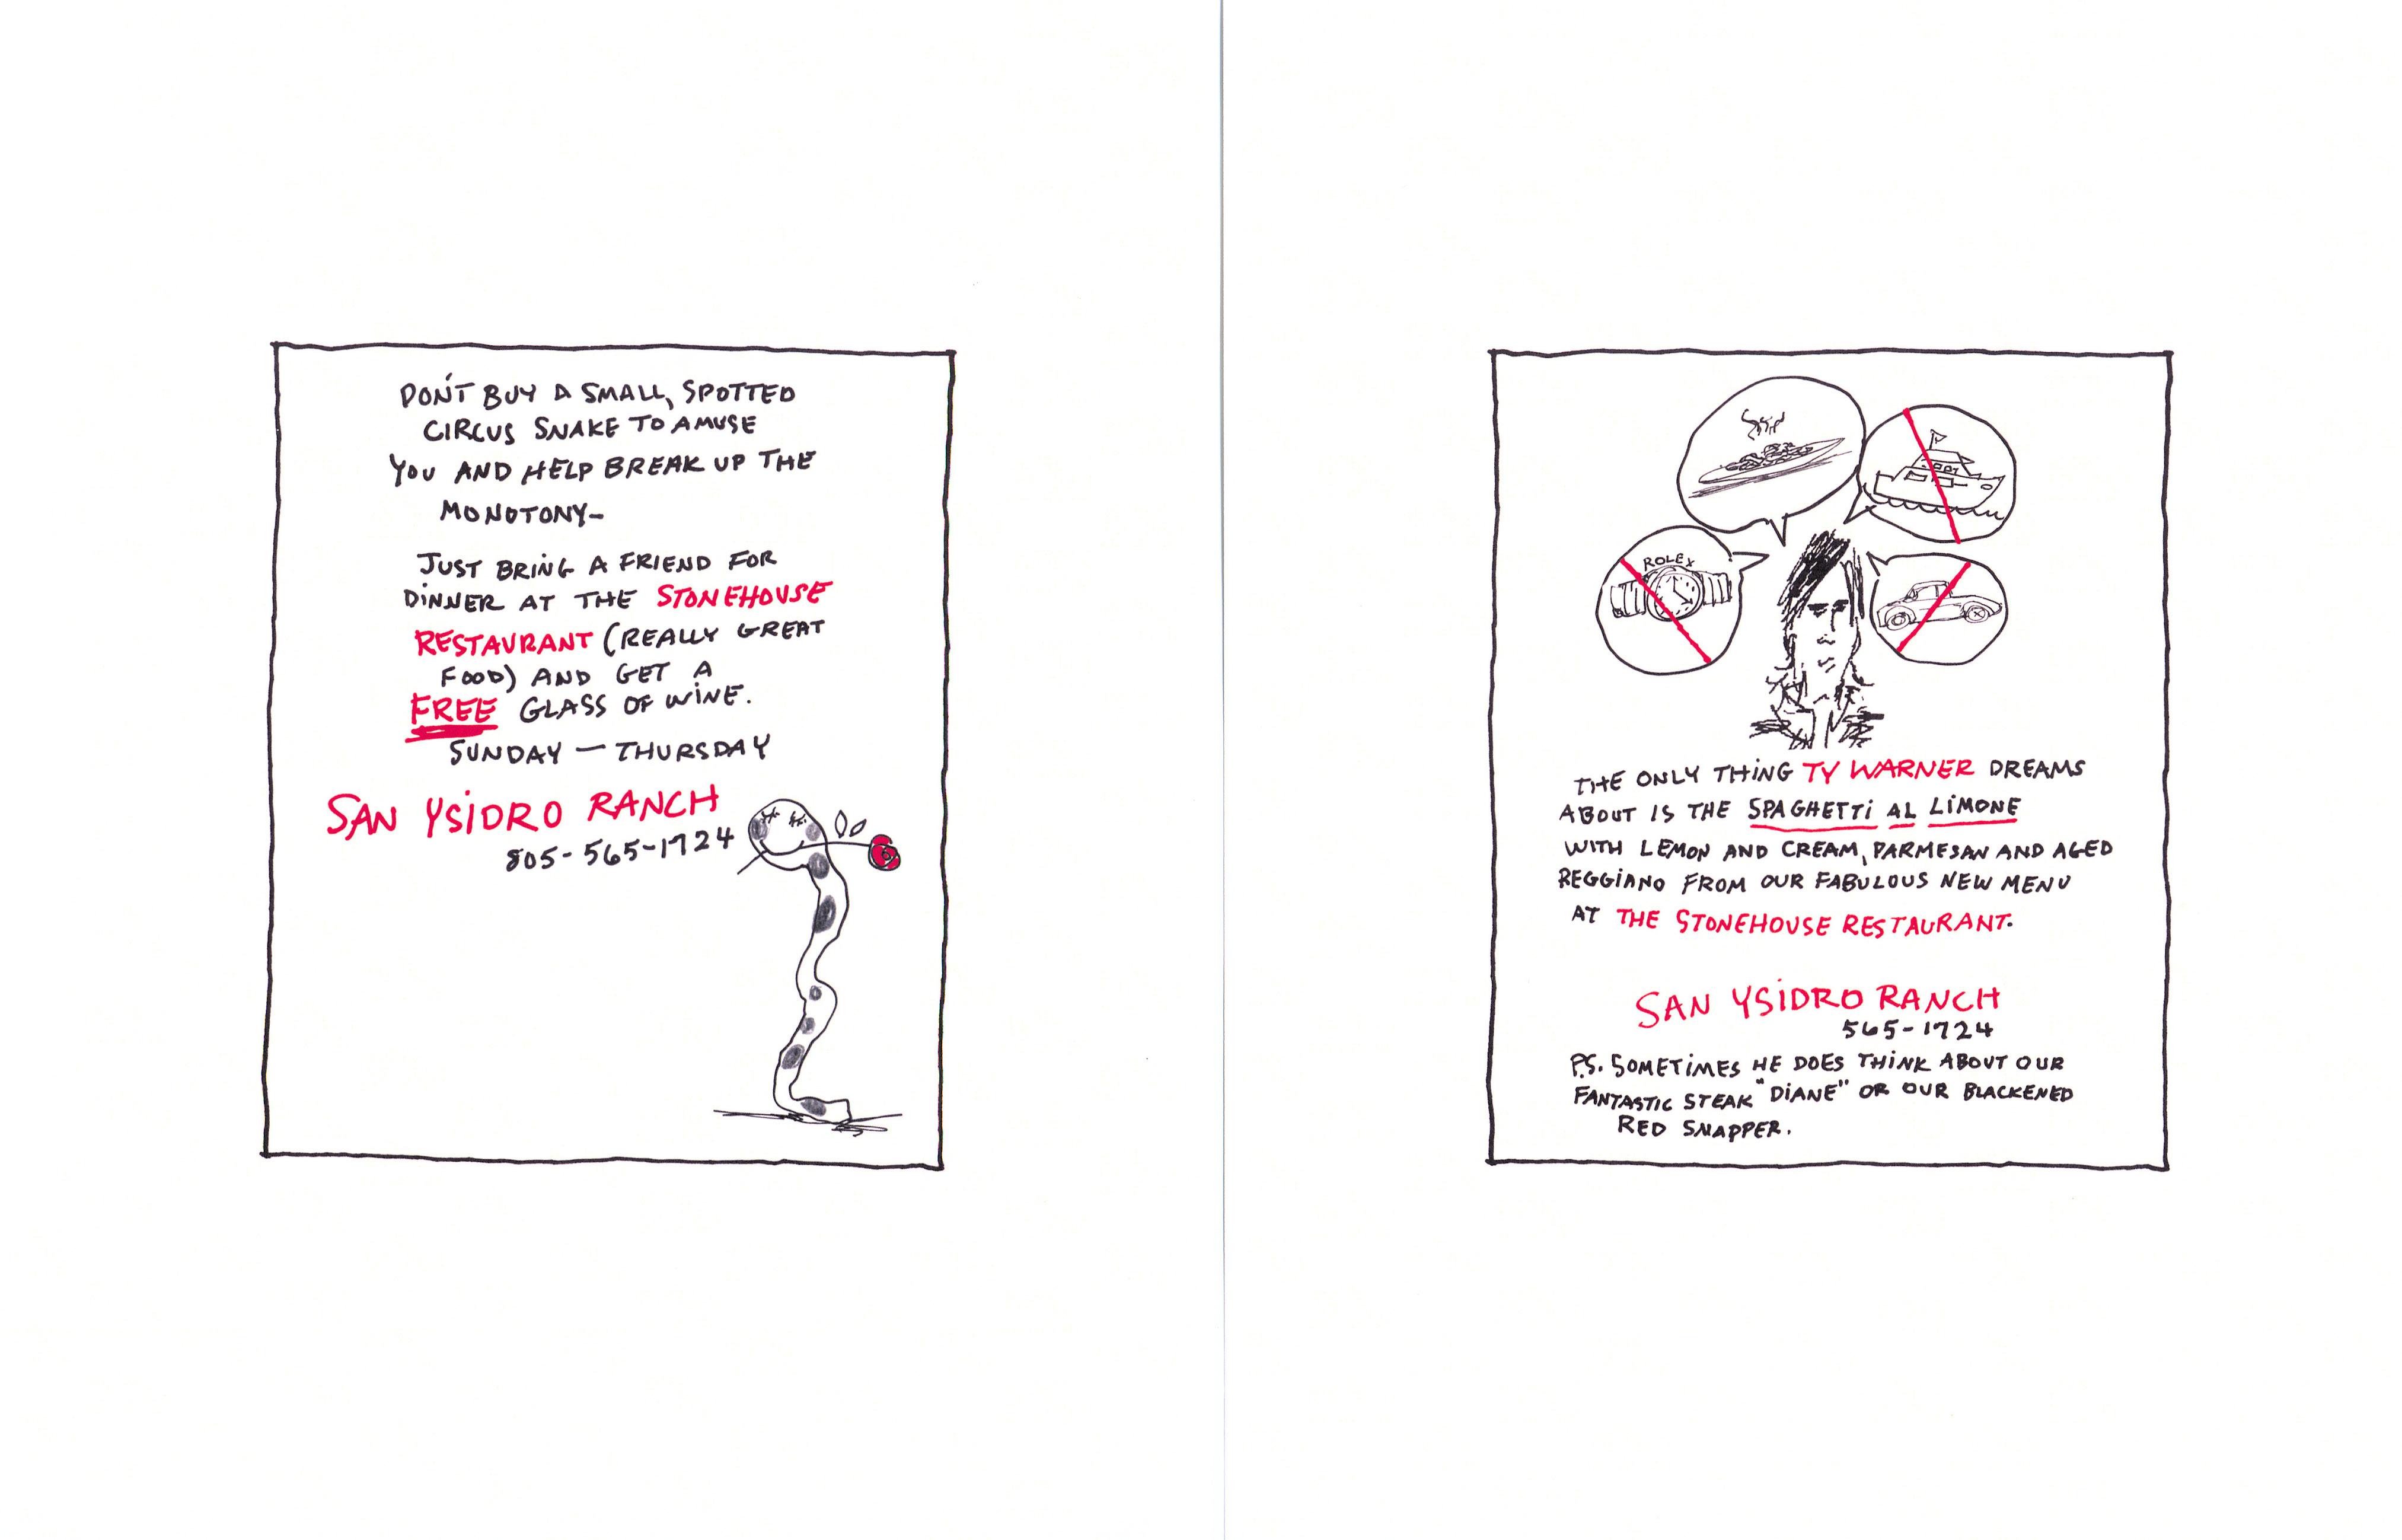 DON'T BUY A SMALL, SPOTTED
CIRCUS SNAKE TO AMUSE
YOU AND HELP BREAK UP THE
MONOTONY—
JUST BRING A FRIEND FOR
DINNER AT THE STONEHOUSE
RESTAURANT (REALLY GREAT
FOOD) AND GET A
FREE GLASS OF WINE.
SUNDAY — THURSDAY
SAN YSIDRO RANCH
805-565-1724
ROLEX
THE ONLY THING TY WARNER DREAMS
ABOUT IS THE SPAGHETTI AL LIMONE
WITH LEMON AND CREAM, PARMESAN AND AGED
REGGIANO FROM OUR FABULOUS NEW MENU
AT THE STONEHOUSE RESTAURANT.
SAN YSIDRO RANCH
565-1724
P.S. SOMETIMES HE DOES THINK ABOUT OUR
FANTASTIC STEAK "DIANE" OR OUR BLACKENED
RED SNAPPER.